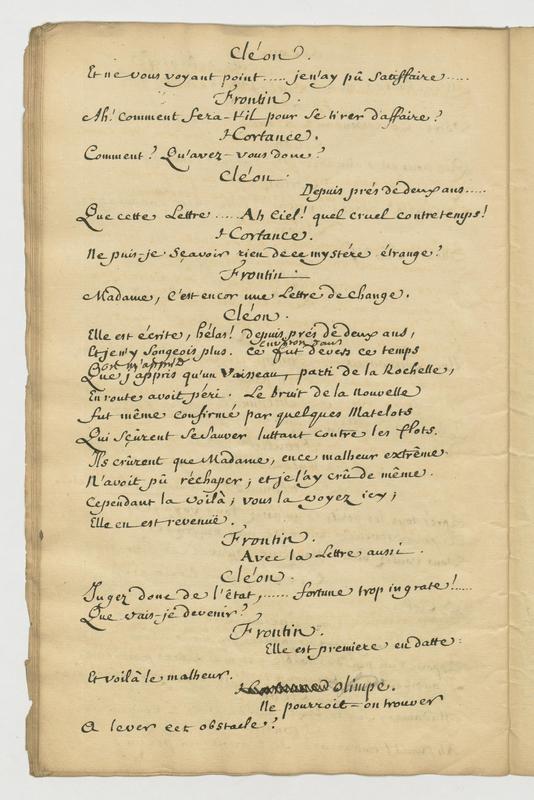 Cléon.
Et ne vous voyant point..... je n'ay pû satiffaire.....
Frontin.
Ah! Comment fera-t'il pour se tirer d'affaire?
Hortance.
Comment? Qu'avez-vous donc?
Cléon.
Depuis prés de deux ans.....
Que cette Lettre..... Ah Ciel! quel cruel contretemps!
Hortance.
Ne puis-je sçavoir rien de ce mystére étrange?
Frontin.
Madame, C'est encor une Lettre de Change.
Cléon.
Elle est écrite, hélas! depuis prés de deux ans,
environ dans
Et je n'y songeois plus. Ce fut devers ce temps
Que j'appris qu'un Vaisseau, parti de la Rochelle,
En route avoit péri. Le bruit de la nouvelle
fut même confirmé par quelques Matelots
Qui sçûrent se sauver luttant contre les flots.
Ils crûrent que Madame, en ce malheur extrême
N'avoit pû réchaper; et je l'ay crû de même.
Cependant la voilà; vous la voyez icy;
Elle en est revenuë.
Frontin.
Avec la Lettre aussi.
Cléon.
Jugez donc de l'état,...... fortune trop ingrate!.....
Que vais-je devenir?
Frontin.
Elle est premiere en datte:
Et voilà le malheur.
Olimpe.
Ne pourroit-on trouver
A lever cet obstacle?